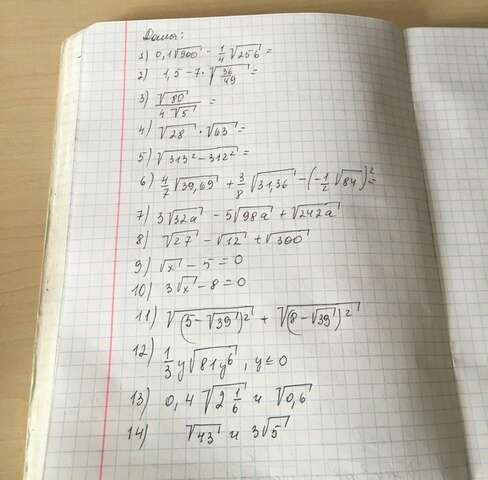 Дома:
1) 0,1√900 - 1/4 √256 =
2) 1,5 - 7 · √(36/49) =
3) √80 / 4√5 =
4) √28 · √63 =
5) √(313² - 312²) =
6) 4/7 √39,69 + 3/8 √31,36 - (-1/2 √84)² =
7) 3√32a - 5√98a + √242a
8) √27 - √12 + √300
9) √x - 5 = 0
10) 3√x - 8 = 0
11) √(5 - √39)² + √(8 - √39)²
12) 1/3 y√81y⁶, y ≤ 0
13) 0,4 √(2 1/6) и √0,6
14) √43 и 3√5